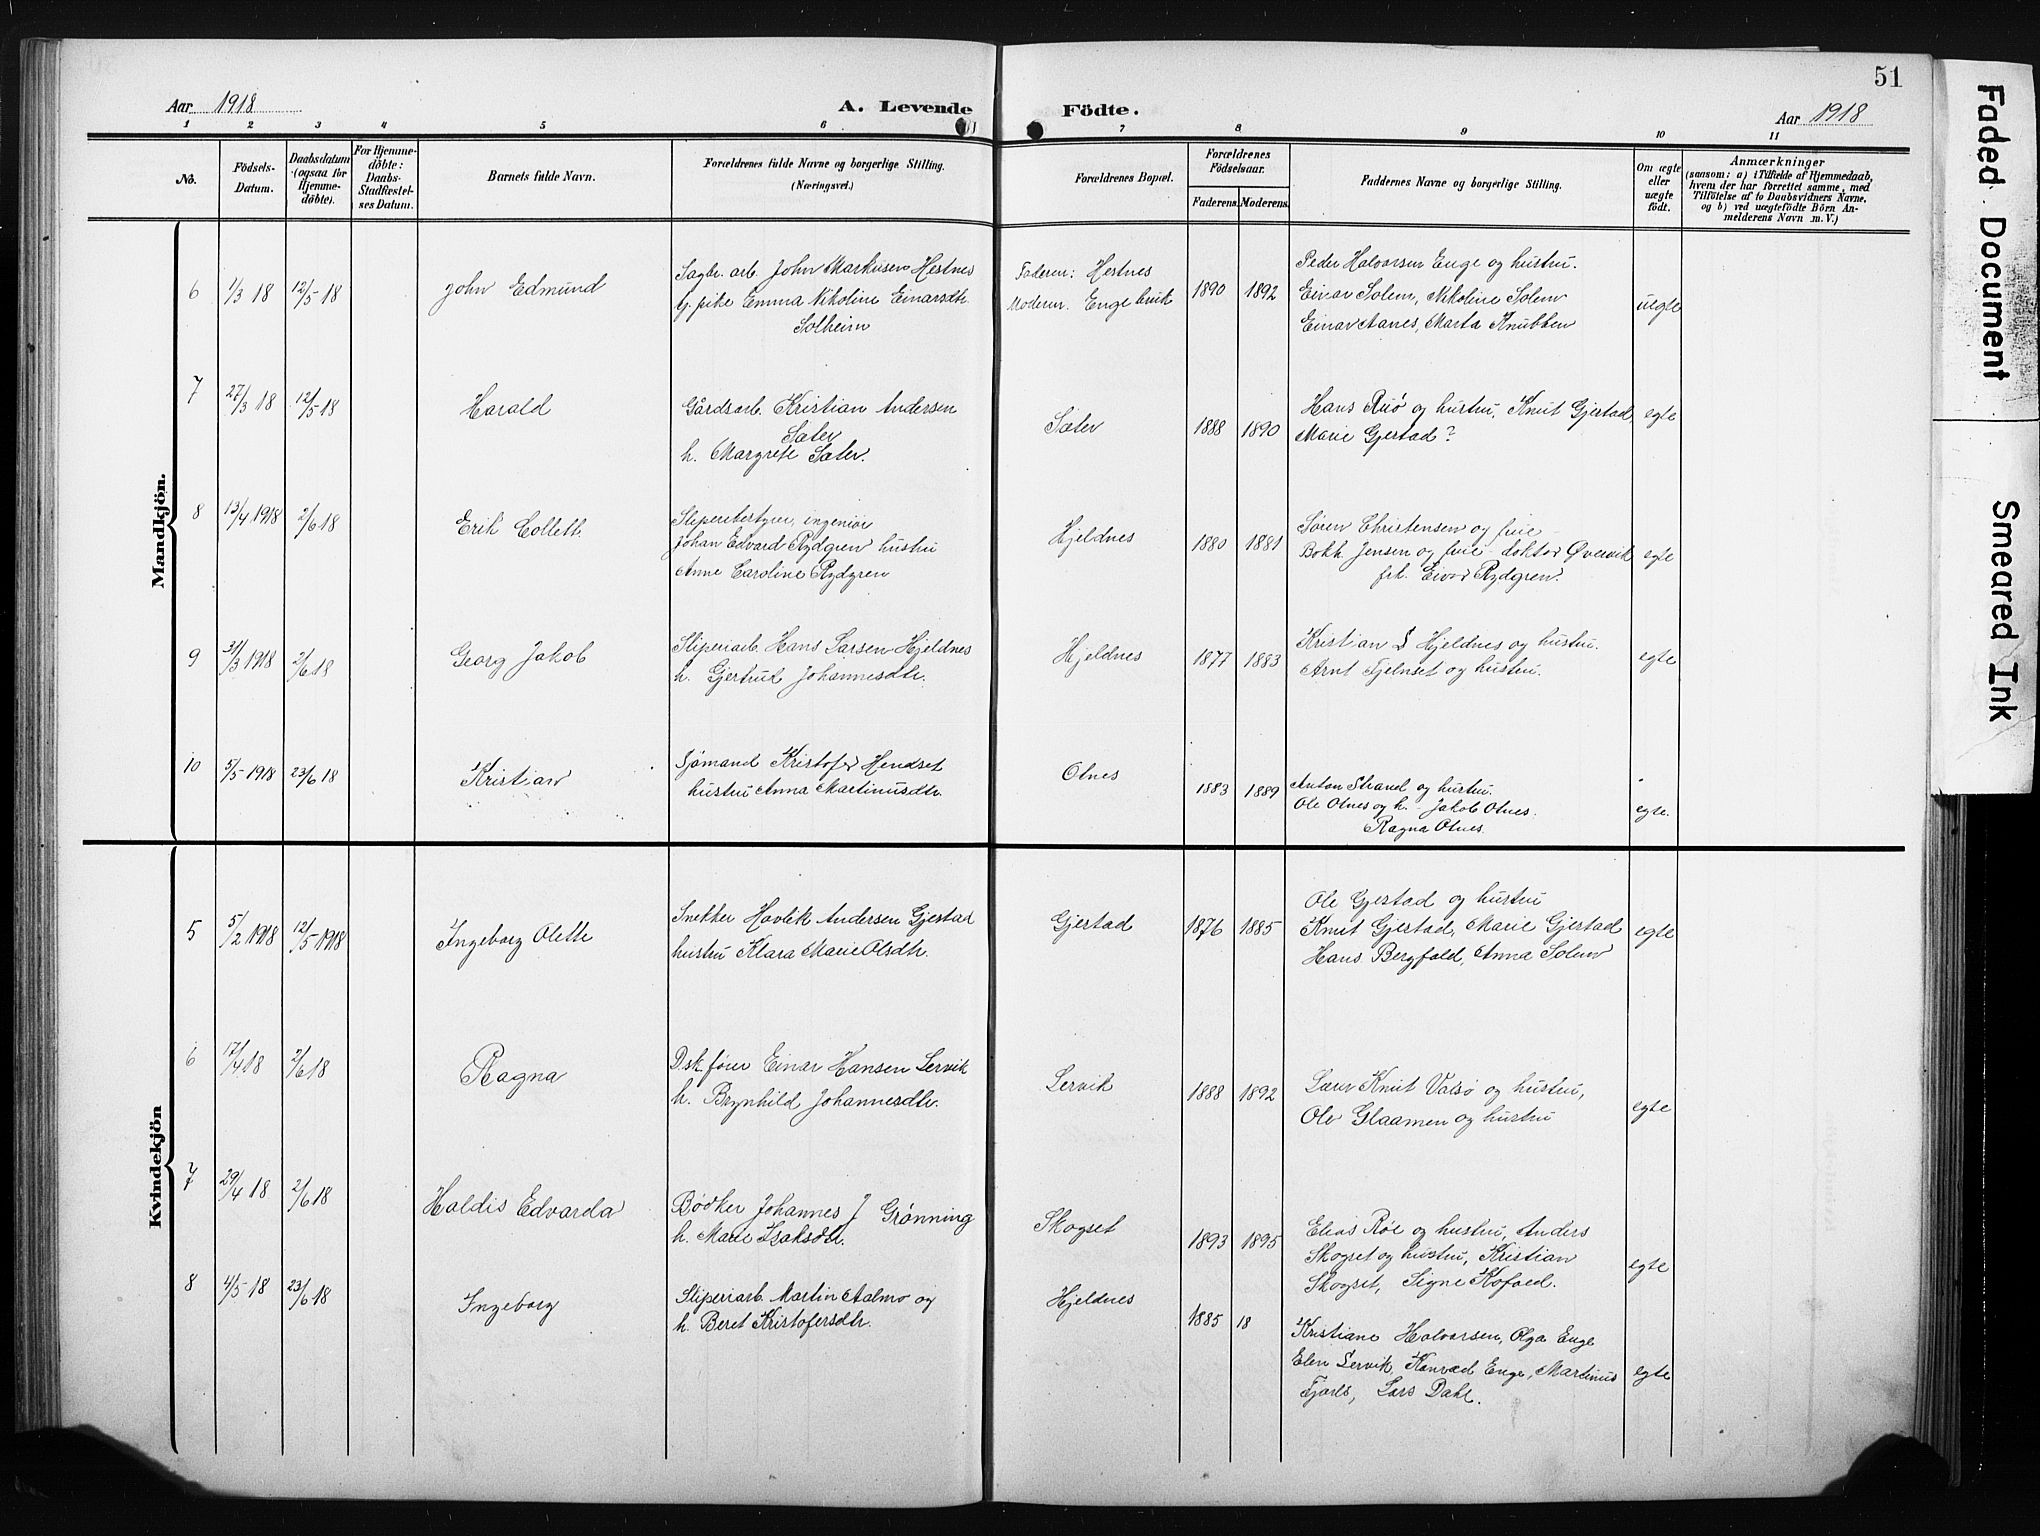 51
Aar 1918
A. Levende
Födte.
Aar 1918
1 2 3 4 5 6 7 8 9 10 11
No.
Födsels-Datum.
Daabsdatum (ogsaa for Hjemmedöbte).
For Hjemmedöbte: Daabs-Stadfæstelses Datum.
Barnets fulde Navn.
Forældrenes fulde Navne og borgerlige Stilling.
(Næringsvei.)
Forældrenes Bopæl.
Forældrenes Födselsaar.
Faderens. Moderens.
Faddernes Navne og borgerlige Stilling.
Om ægte eller uægte födt.
Anmærkninger
(saasom: a) i Tilfælde af Hjemmedaab, hvem der har forrettet samme, med Tilföielse af to Daabsvidners Navne, og b) ved uægtefödte Börn Anmelderens Navn m. V.)
Mandkjön.
6 1/3 18 12/5 18 John Edmund
Sagbr. arb. John Markusen Hestnes
g. pike Emma Nikoline Einarsdtr.
Solheim
Faderen: Hestnes
Moderen: Engelsvik
1890 1892
Peder Halvorsen Enge og hustru.
Einar Solem, Nikoline Solem
Einar Aanes, Marta Knubben
uegte
7 27/3 18 12/5 18 Harald
Gårdsarb. Kristian Andersen
Sæter
h. Margrete Sæter.
Sæter
1888 1890
Hans Ruø og hustru, Knut Gjerstad,
Marie Gjerstad?
egte
8 13/4 1918 2/6 18 Erik Collett.
Sliperibestyrer, ingeniør
Johan Edvard Rydgren hustru
Anne Caroline Rydgren
Hjeldnes
1880 1881
Søren Christensen og frue
Bokh. Jensen og frue - doktor Øvervik
frk. Eivor Rydgren.
egte
9 31/3 1918 2/6 18 Georg Jakob
Sliperiarb. Hans Larsen Hjeldnes
h. Gjertrud Johannesdtr.
Hjeldnes
1877 1883
Kristian Hjeldnes og hustru.
Arnt Fjelnset og hustru.
egte
10 5/5 1918 23/6 18 Kristian
Sjømand Kristofer Hendset
hustru Anna Martinusdtr.
Otnes
1883 1889
Anton Strand og hustru.
Ole Otnes og h. - Jakob Otnes.
Ragna Otnes.
egte.
Kvindekjön
5 5/2 1918 12/5 1918 Ingeborg Olette
Snekker Hovlik Andersen Gjerstad
hustru Klara Marie Olsdtr.
Gjerstad
1876 1885
Ole Gjerstad og hustru
Knut Gjerstad, Marie Gjerstad
Hans Bergfald, Anna Solem
egte
6 17/4 18 2/6 18 Ragna
D.sk.fører Einar Hansen Lervik
h. Brynhild Johannesdtr.
Lervik
1888 1892
Lærer Knut Valsø og hustru,
Ole Glaamen og hustru
egte
7 29/4 18 2/6 18 Haldis Edvarda
Bødker Johannes J Grønning
h. Marie Isaksdtr.
Skogset
1893 1895
Elias Røe og hustru, Anders
Skogset og hustru, Kristian
Skogset, Signe Kofoed.
egte
8 4/5 18 23/6 18 Ingeborg
Sliperiarb. Martin Aalmo og
h. Beret Kristofersdtr.
Hjeldnes
1885 18
Kristiane Halvorsen, Olga Enge
Elen Lervik, Konrad Enge, Martinus
Fjorls, Lars Dahl.
egte
Faded Document
Smeared Ink